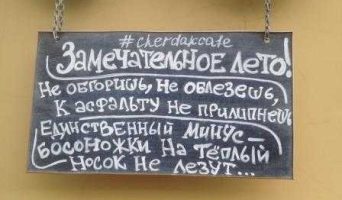 #cherdakcafe
Замечательное лето!
Не обгоришь, Не облезешь,
К асфальту Не прилипнешь
Единственный Минус –
босоножки На тёплый
Носок Не лезут...